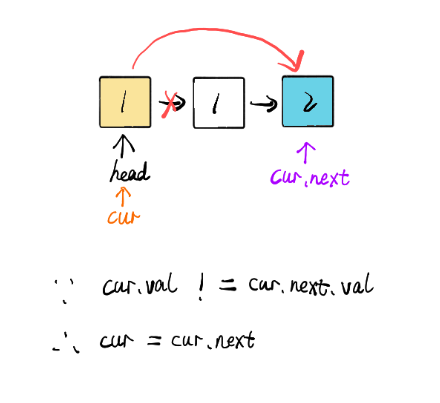 1 1 2
head
cur.next
cur
∵ cur.val != cur.next.val
∴ cur = cur.next